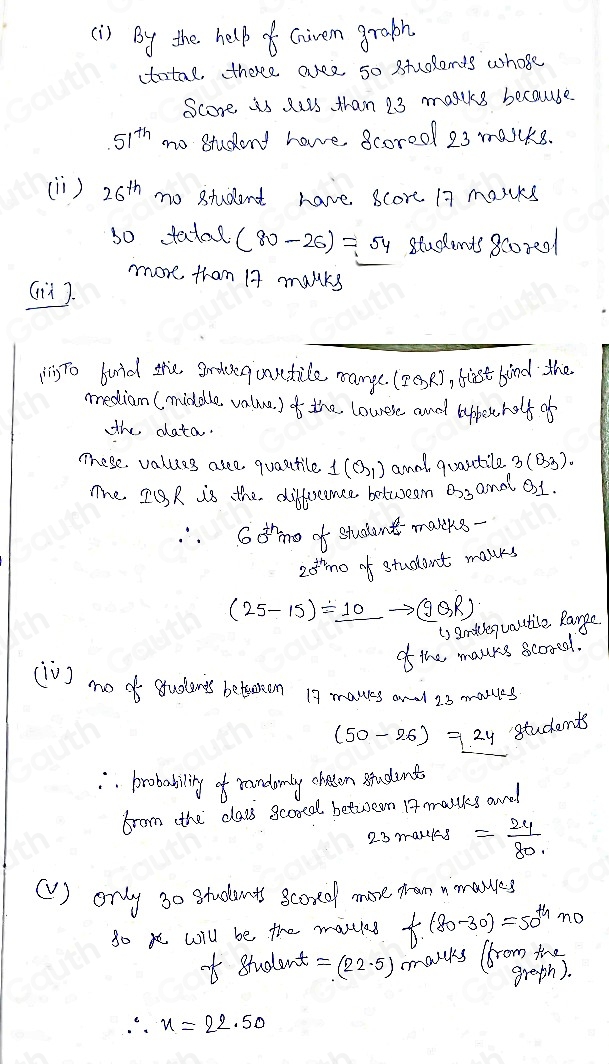 (i) By the help of Given graph
total there are 50 students whose
Score is less than 23 marks because
51th no student have Scored 23 marks.
(ii) 26th no student have score 17 marks
so total (80-26) = 54 students scored
more than 17 marks
(iii).
(iii) To find the Interquartile range (IQR), first find the
median (middle value) of the lower and upper half of
the data.
These values are quartile 1 (Q1) and quartile 3 (Q3).
The IQR is the difference between Q3 and Q1.
∴ 60th no of student marks -
20th no of student marks
(25-15) = 10 → (IQR)
↳ Interquartile Range
of the marks scored.
(iv) no of students between 17 marks and 23 marks
(50-26) = 24 students
∴ probability of randomly chosen student
from the class scored between 17 marks and
23 marks = 24/80.
(v) only 30 students scored more than x marks
so x will be the marks of (80-30) = 50th no
of student = (22.5) marks (from the
graph).
∴ x = 22.50